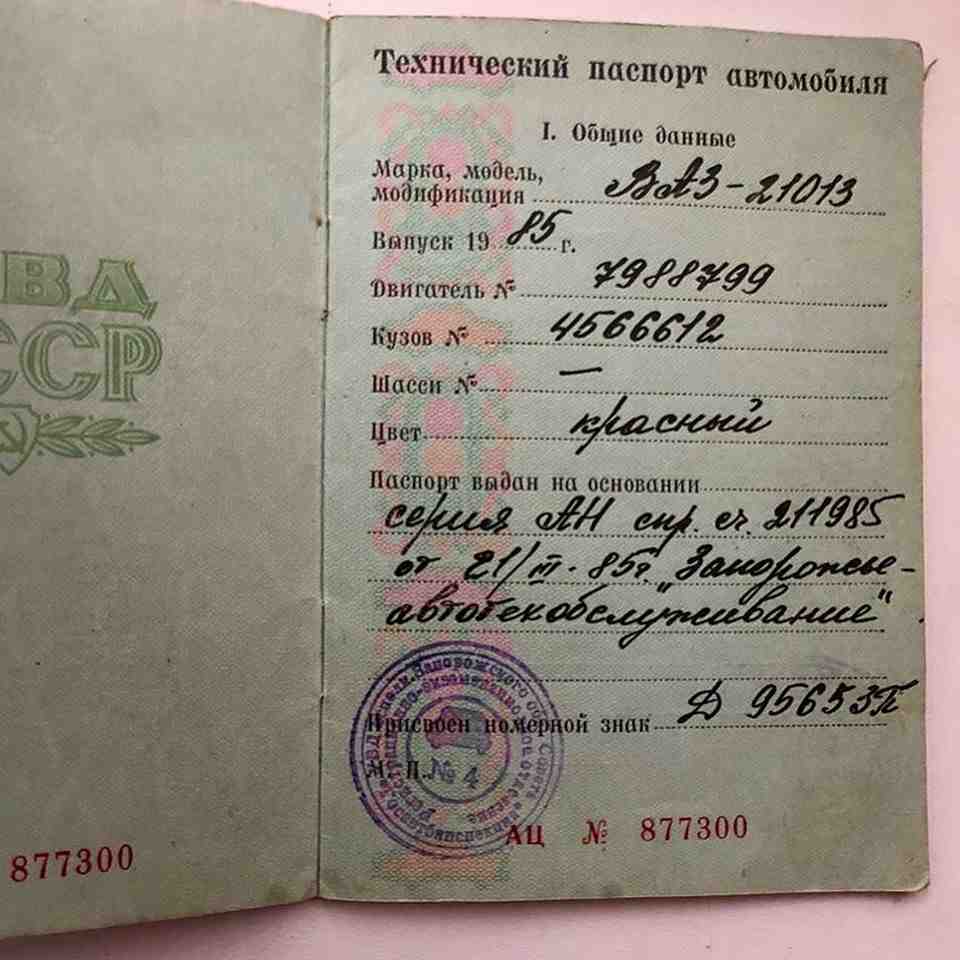 ВД
ССР
877300
Технический паспорт автомобиля
I. Общие данные
Марка, модель,
модификация ВАЗ-21013
Выпуск 19 85 г.
Двигатель № 7988799
Кузов № 4566612
Шасси № —
Цвет красный
Паспорт выдан на основании
серия АН спр. сч. 211985
от 21/III-85г. "Запорожье-
автотехобслуживание"
Присвоен номерной знак Д 9565ЗП
М. П. № 4
АЦ № 877300